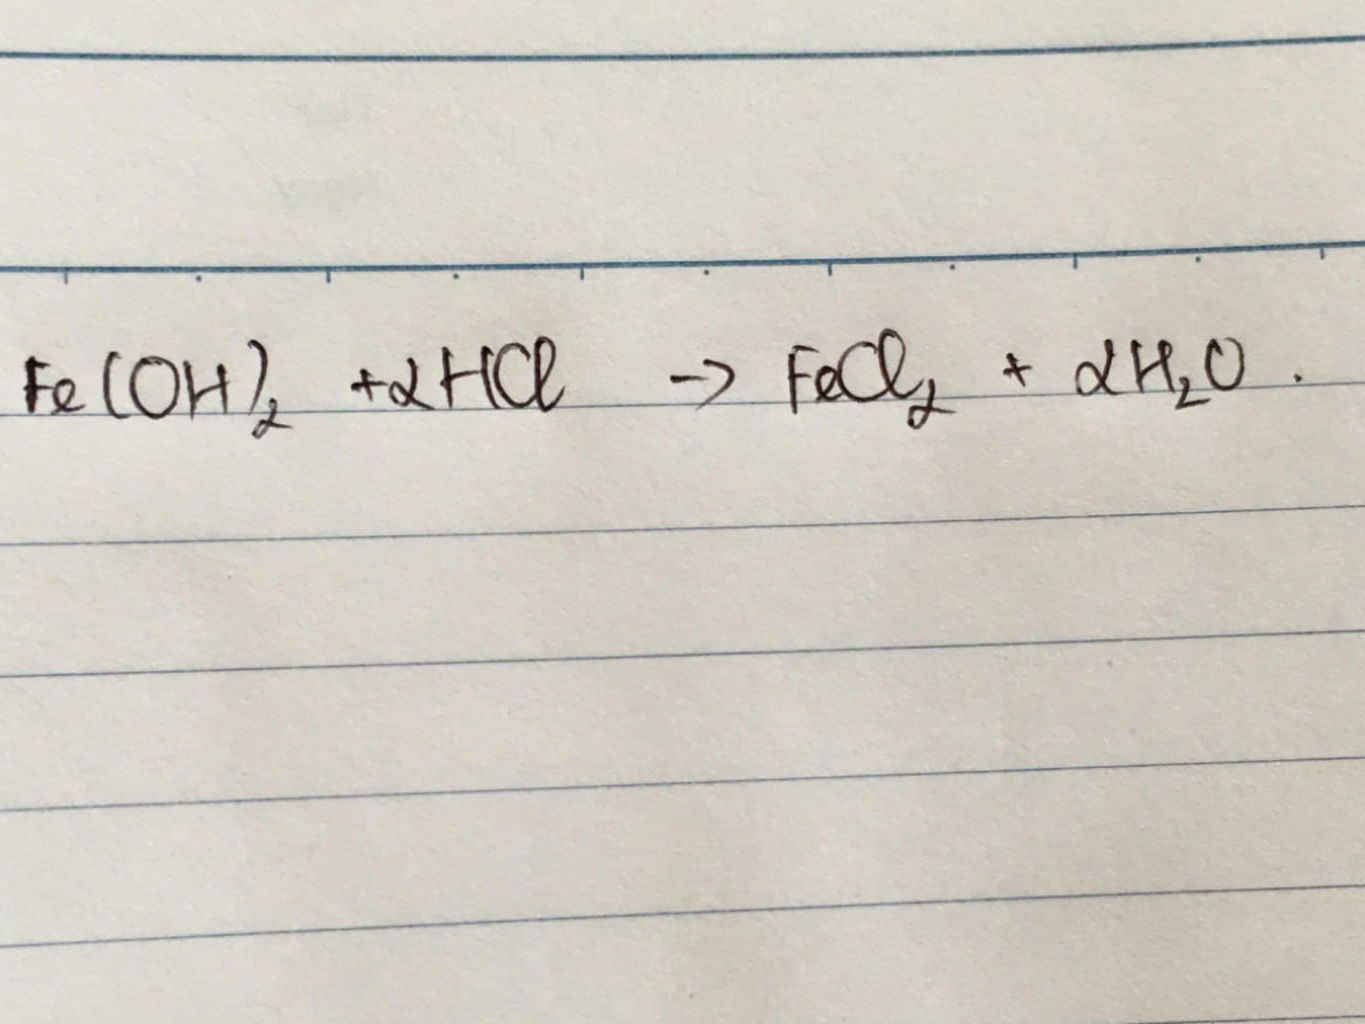 Fe(OH)₂ + 2HCl → FeCl₂ + 2H₂O.